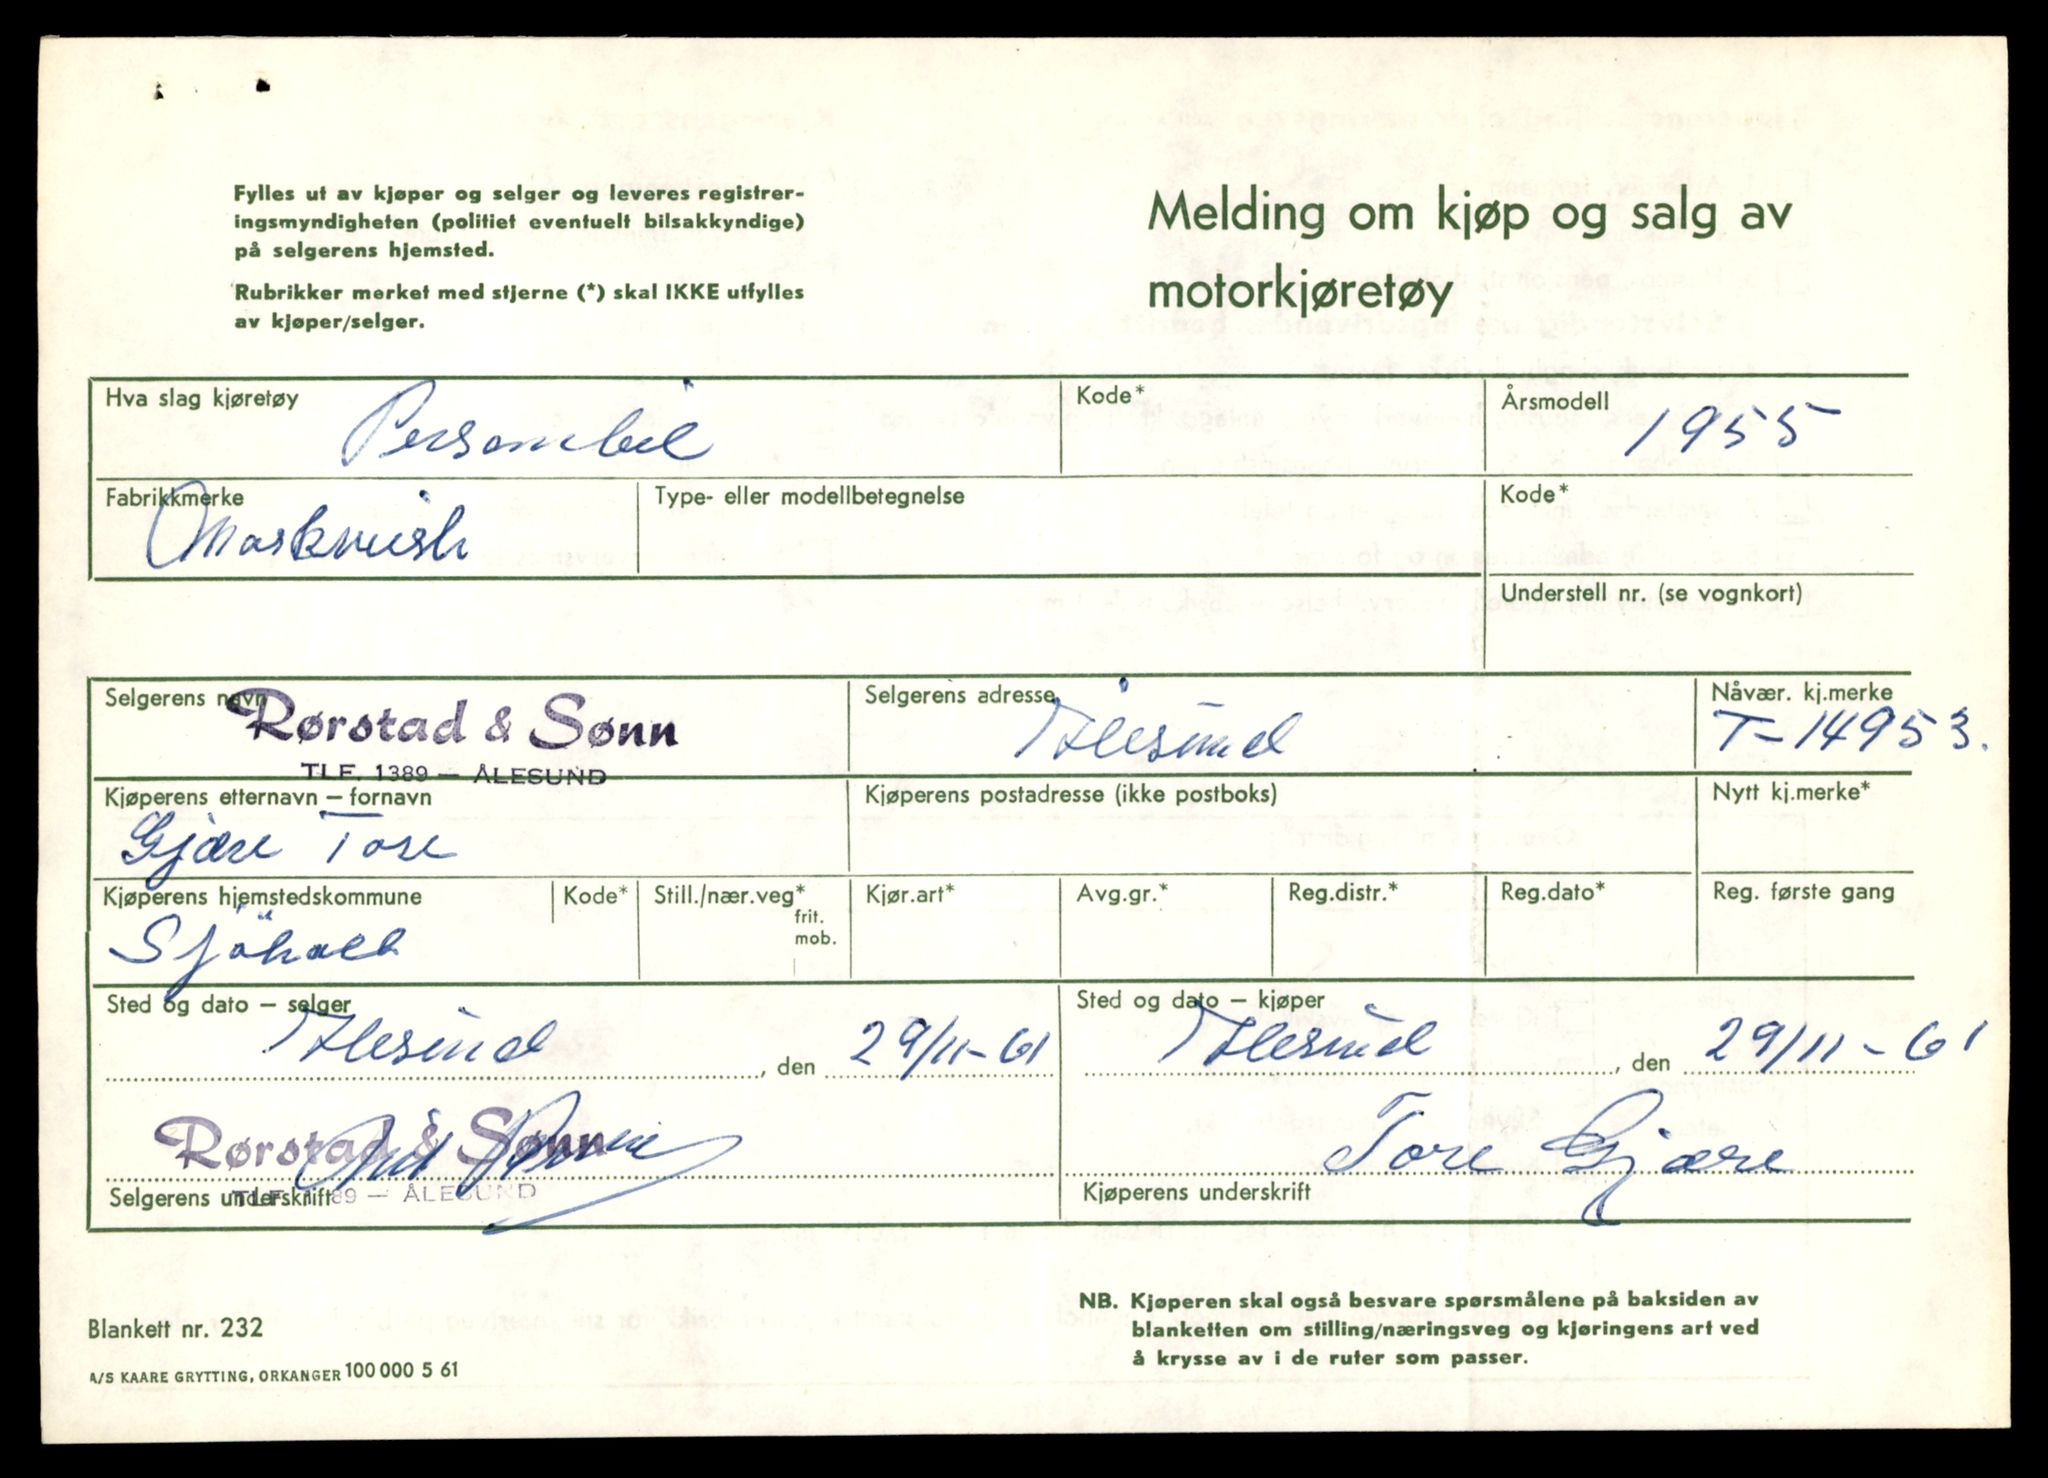 Fylles ut av kjøper og selger og leveres registrer-
ingsmyndigheten (politiet eventuelt bilsakkyndige)
på selgerens hjemsted.
Rubrikker merket med stjerne (*) skal IKKE utfylles
av kjøper/selger.
Melding om kjøp og salg av
motorkjøretøy
Hva slag kjøretøy
Personbil
Kode*
Årsmodell
1955
Fabrikkmerke
Moskvitsh
Type- eller modellbetegnelse
Kode*
Understell nr. (se vognkort)
Selgerens navn
Rørstad & Sønn
TLF. 1389 — ÅLESUND
Selgerens adresse
Ålesund
Nåvær. kj.merke
T-14953.
Kjøperens etternavn – fornavn
Gjære Tore
Kjøperens postadresse (ikke postboks)
Nytt kj.merke*
Kjøperens hjemstedskommune
Sjöholt
Kode*
Still./nær.veg*
frit.
mob.
Kjør.art*
Avg.gr.*
Reg.distr.*
Reg.dato*
Reg. første gang
Sted og dato – selger
Ålesund, den 29/11-61
Sted og dato – kjøper
Ålesund, den 29/11-61
Rørstad & Sønn
TLF. 1389 — ÅLESUND
Selgerens underskrift
Tore Gjære
Kjøperens underskrift
Blankett nr. 232
A/S KAARE GRYTTING, ORKANGER 100 000 5 61
NB. Kjøperen skal også besvare spørsmålene på baksiden av
blanketten om stilling/næringsveg og kjøringens art ved
å krysse av i de ruter som passer.